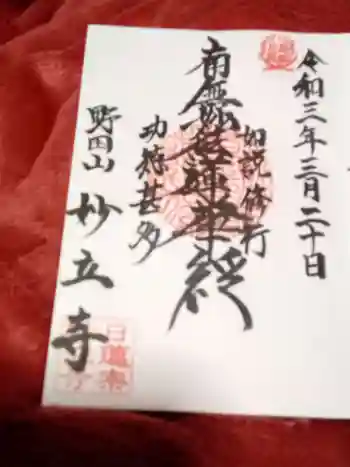 令和三年三月二十日
如説修行
南無妙法蓮華経
功徳甚多
野田山
妙立寺
日蓮宗